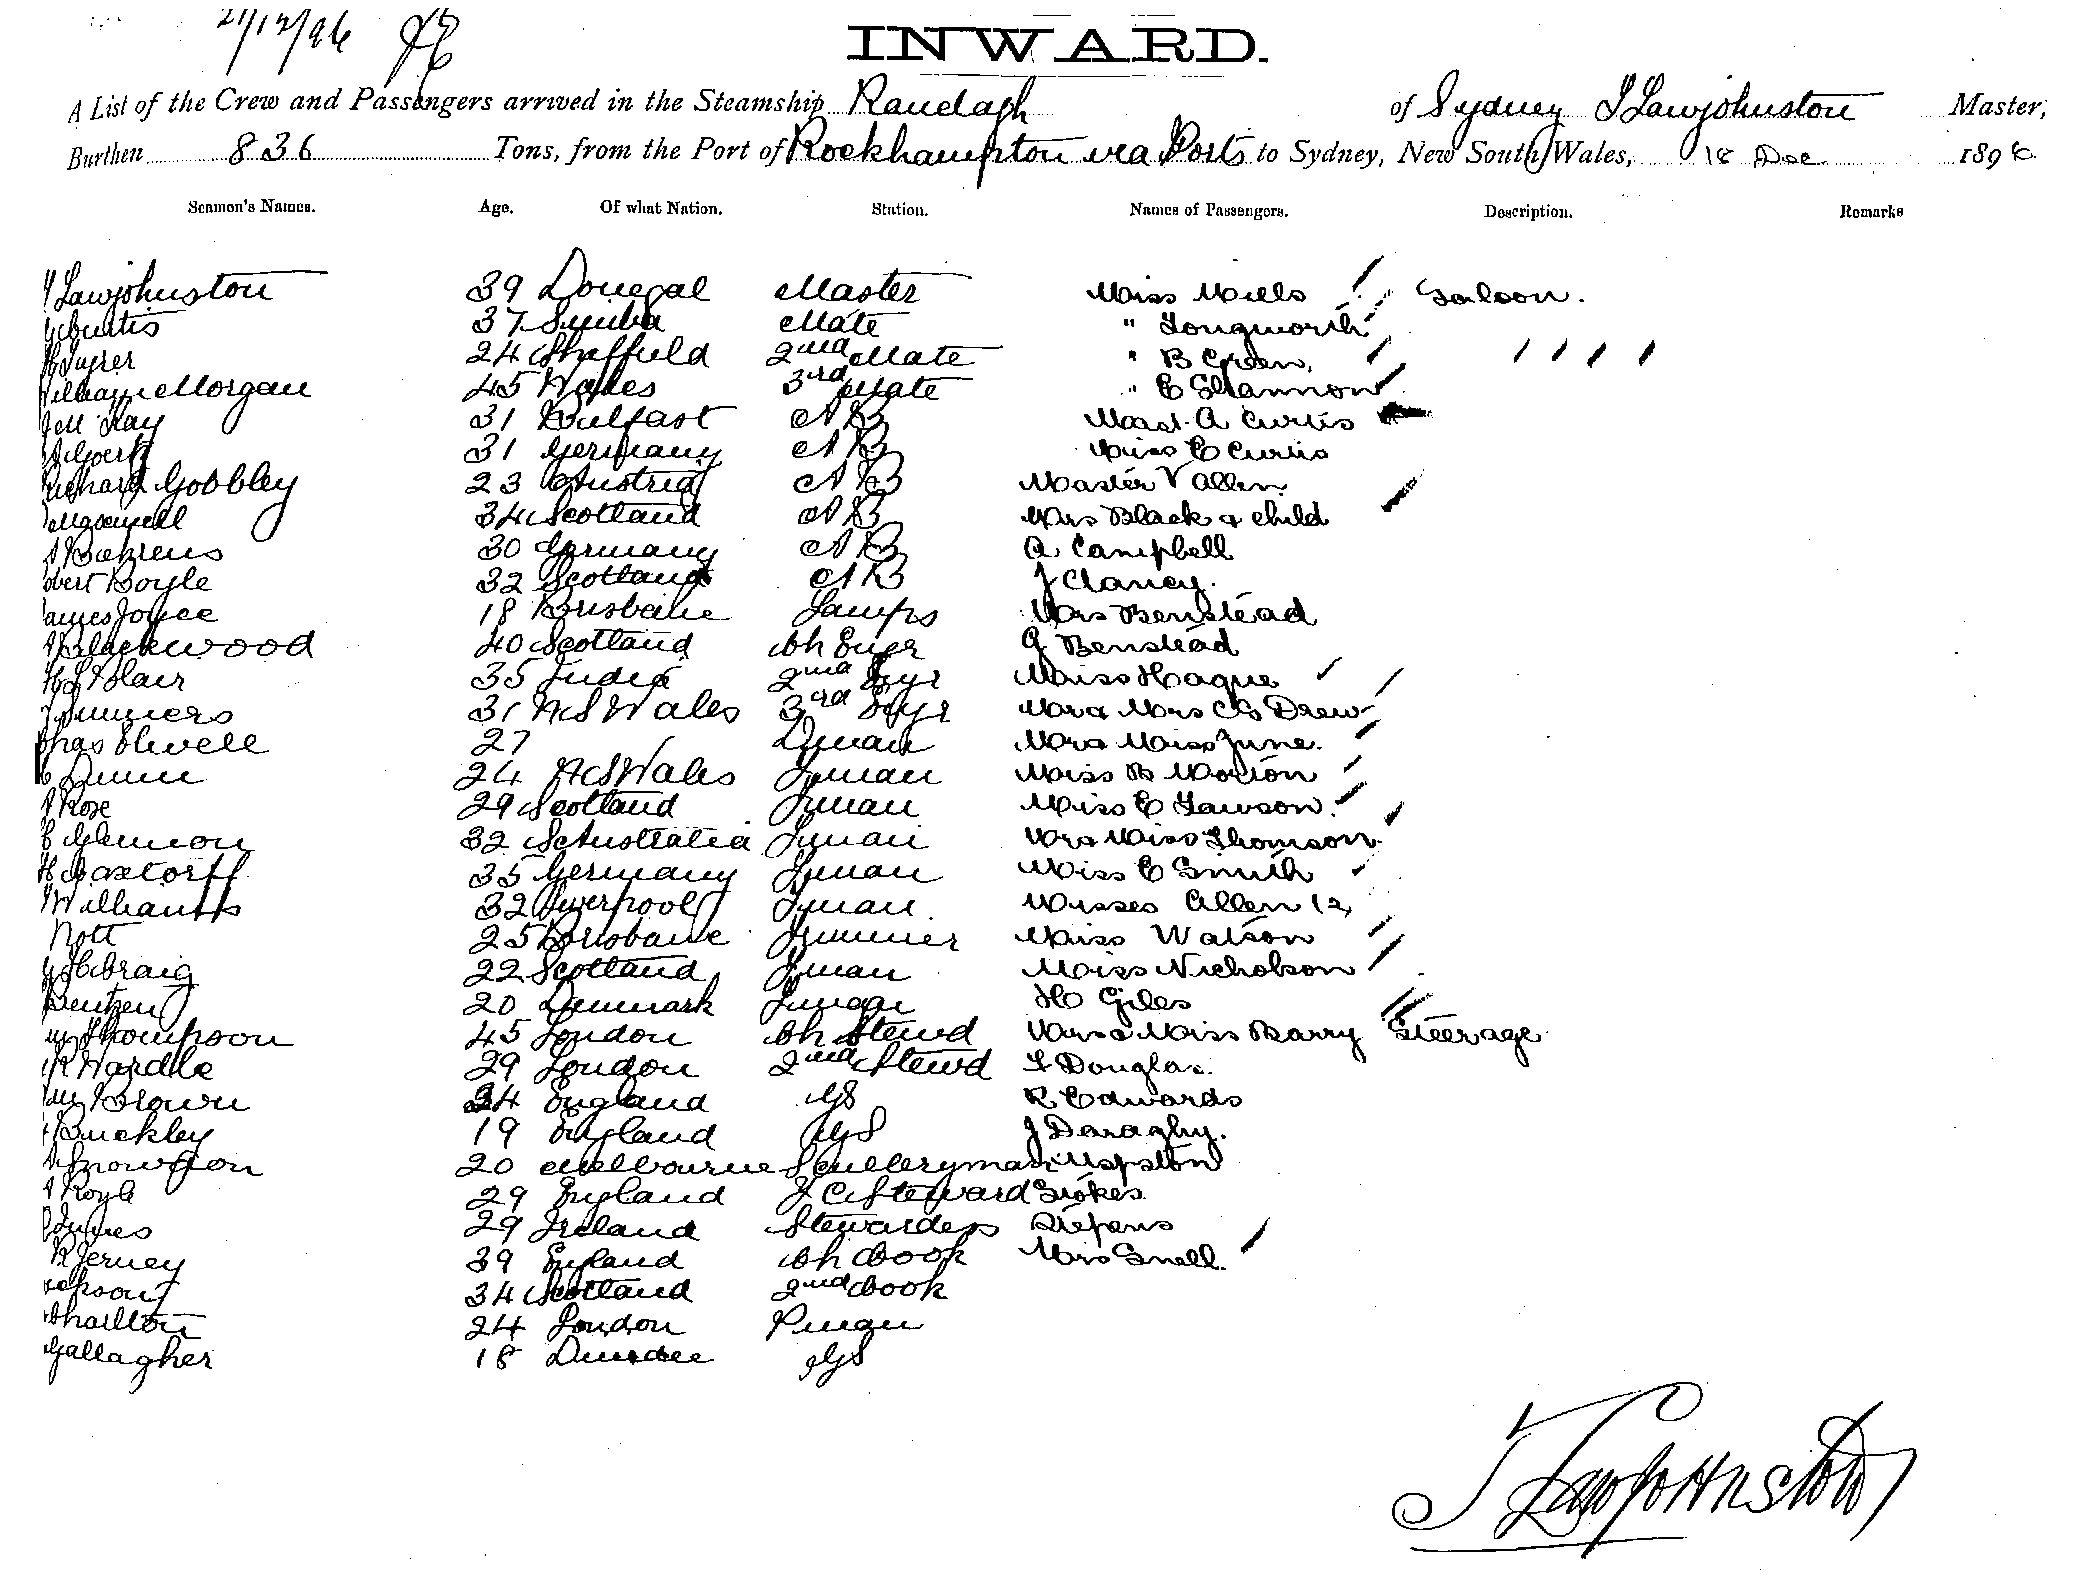 21/12/96
INWARD.
A List of the Crew and Passengers arrived in the Steamship Ranelagh of Sydney J Lawjohnston Master,
Burthen 836 Tons, from the Port of Rockhampton via Ports to Sydney, New South Wales, 18 Dec 1896
Seamen's Names. Age. Of what Nation. Station. Names of Passengers. Description. Remarks
Lawjohnston 39 Donegal Master Miss Mills Saloon.
Curtis 37 Mate " Longworth
24 Sheffield 2nd Mate " B Green
William Morgan 45 Wales 3rd Mate " E Shannon
Kay 31 Belfast AB A Curtis
31 Germany AB Miss E Curtis
Richard Gobbley 23 Austria AB Master V Allen
Maxwell 34 Scotland AB Mrs Black & child
Behrens 30 Germany AB A Campbell
obert Boyle 32 Scotland AB J Clancy.
ames Joyce 18 Brisbane Lamps Mrs Benstead
Blackwood 40 Scotland Ch Engr G Benstead
Blair 35 India 2nd Engr Miss Hague
Summers 31 N S Wales 3rd Engr Mr & Mrs Drew
Chas Elwell 27 Dyman Mr & Miss June.
Dunn 24 N S Wales Fyman Miss B Morton
Rose 29 Scotland Fyman Miss E Lawson.
32 S Australia Fyman Mrs Miss Thomson
35 Germany Fyman Miss E Smith
Williams 32 Liverpool Fyman. Misses Allen (2)
Nott 25 Brisbane Trimmer Miss Watson
Craig 22 Scotland Fyman Miss Nicholson
Bentzen 20 Denmark Fyman H Giles
Thompson 45 London Ch Stewd Mrs & Miss Barry Steerage
Wardle 29 London 2nd Stewd L Douglas.
Brown 24 England GS R Edwards
Buckley 19 England GS J Daraghy.
Snowdon 20 Melbourne Sculleryman
Royle 29 England F C Steward Stokes
29 Ireland Stewardess Stefens
39 England Ch Cook Mrs Snell.
34 Scotland 2nd Cook
Charlton 24 London Pman
Gallagher 18 Dundee GS
J Lawjohnston